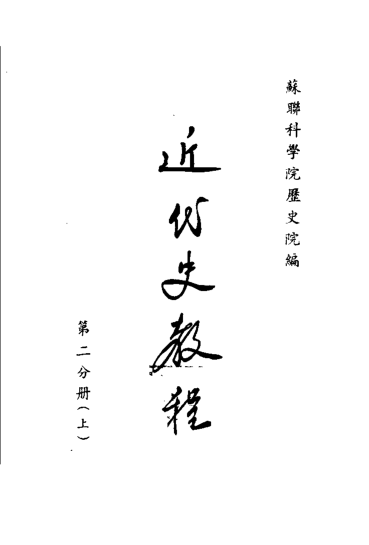 蘇聯科學院歷史院編
近代史教程
第二分册(上)